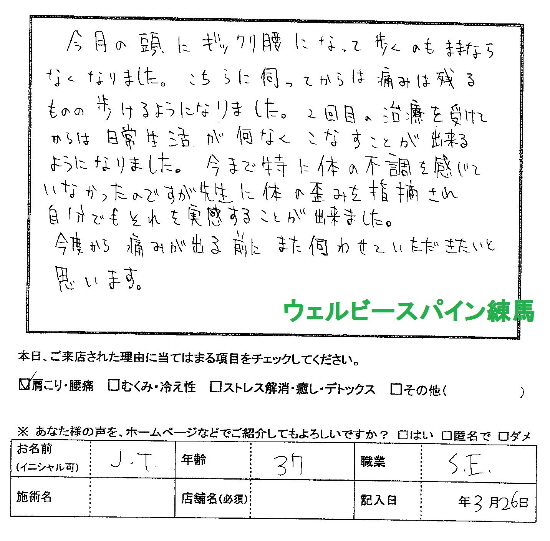 今月の頭にギックリ腰になって歩くのもままなら
なくなりました。こちらに伺ってからは痛みは残る
ものの歩けるようになりました。2回目の治療を受けて
からは日常生活が何なくこなすことが出来る
ようになりました。今まで特に体の不調を感じて
いなかったのですが先生に体の歪みを指摘され
自分でもそれを実感することが出来ました。
今度から痛みが出る前にまた伺わせていただきたいと
思います。
ウェルビースパイン練馬
本日、ご来店された理由に当てはまる項目をチェックしてください。
☑肩こり・腰痛 □むくみ・冷え性 □ストレス解消・癒し・デトックス □その他( )
※ あなた様の声を、ホームページなどでご紹介してもよろしいですか？ □はい □匿名で □ダメ
お名前 (イニシャル可) J.T. 年齢 37 職業 S.E.
施術名 店舗名(必須) 記入日 年3月26日